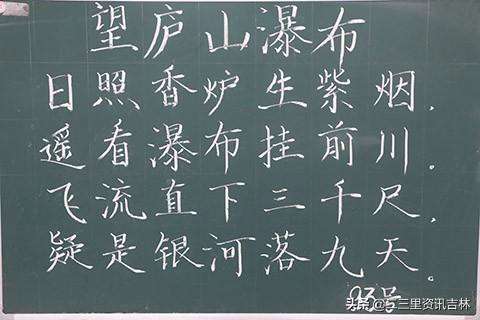 望庐山瀑布
日照香炉生紫烟，
遥看瀑布挂前川。
飞流直下三千尺，
疑是银河落九天。
93号
头条 @二三里资讯吉林